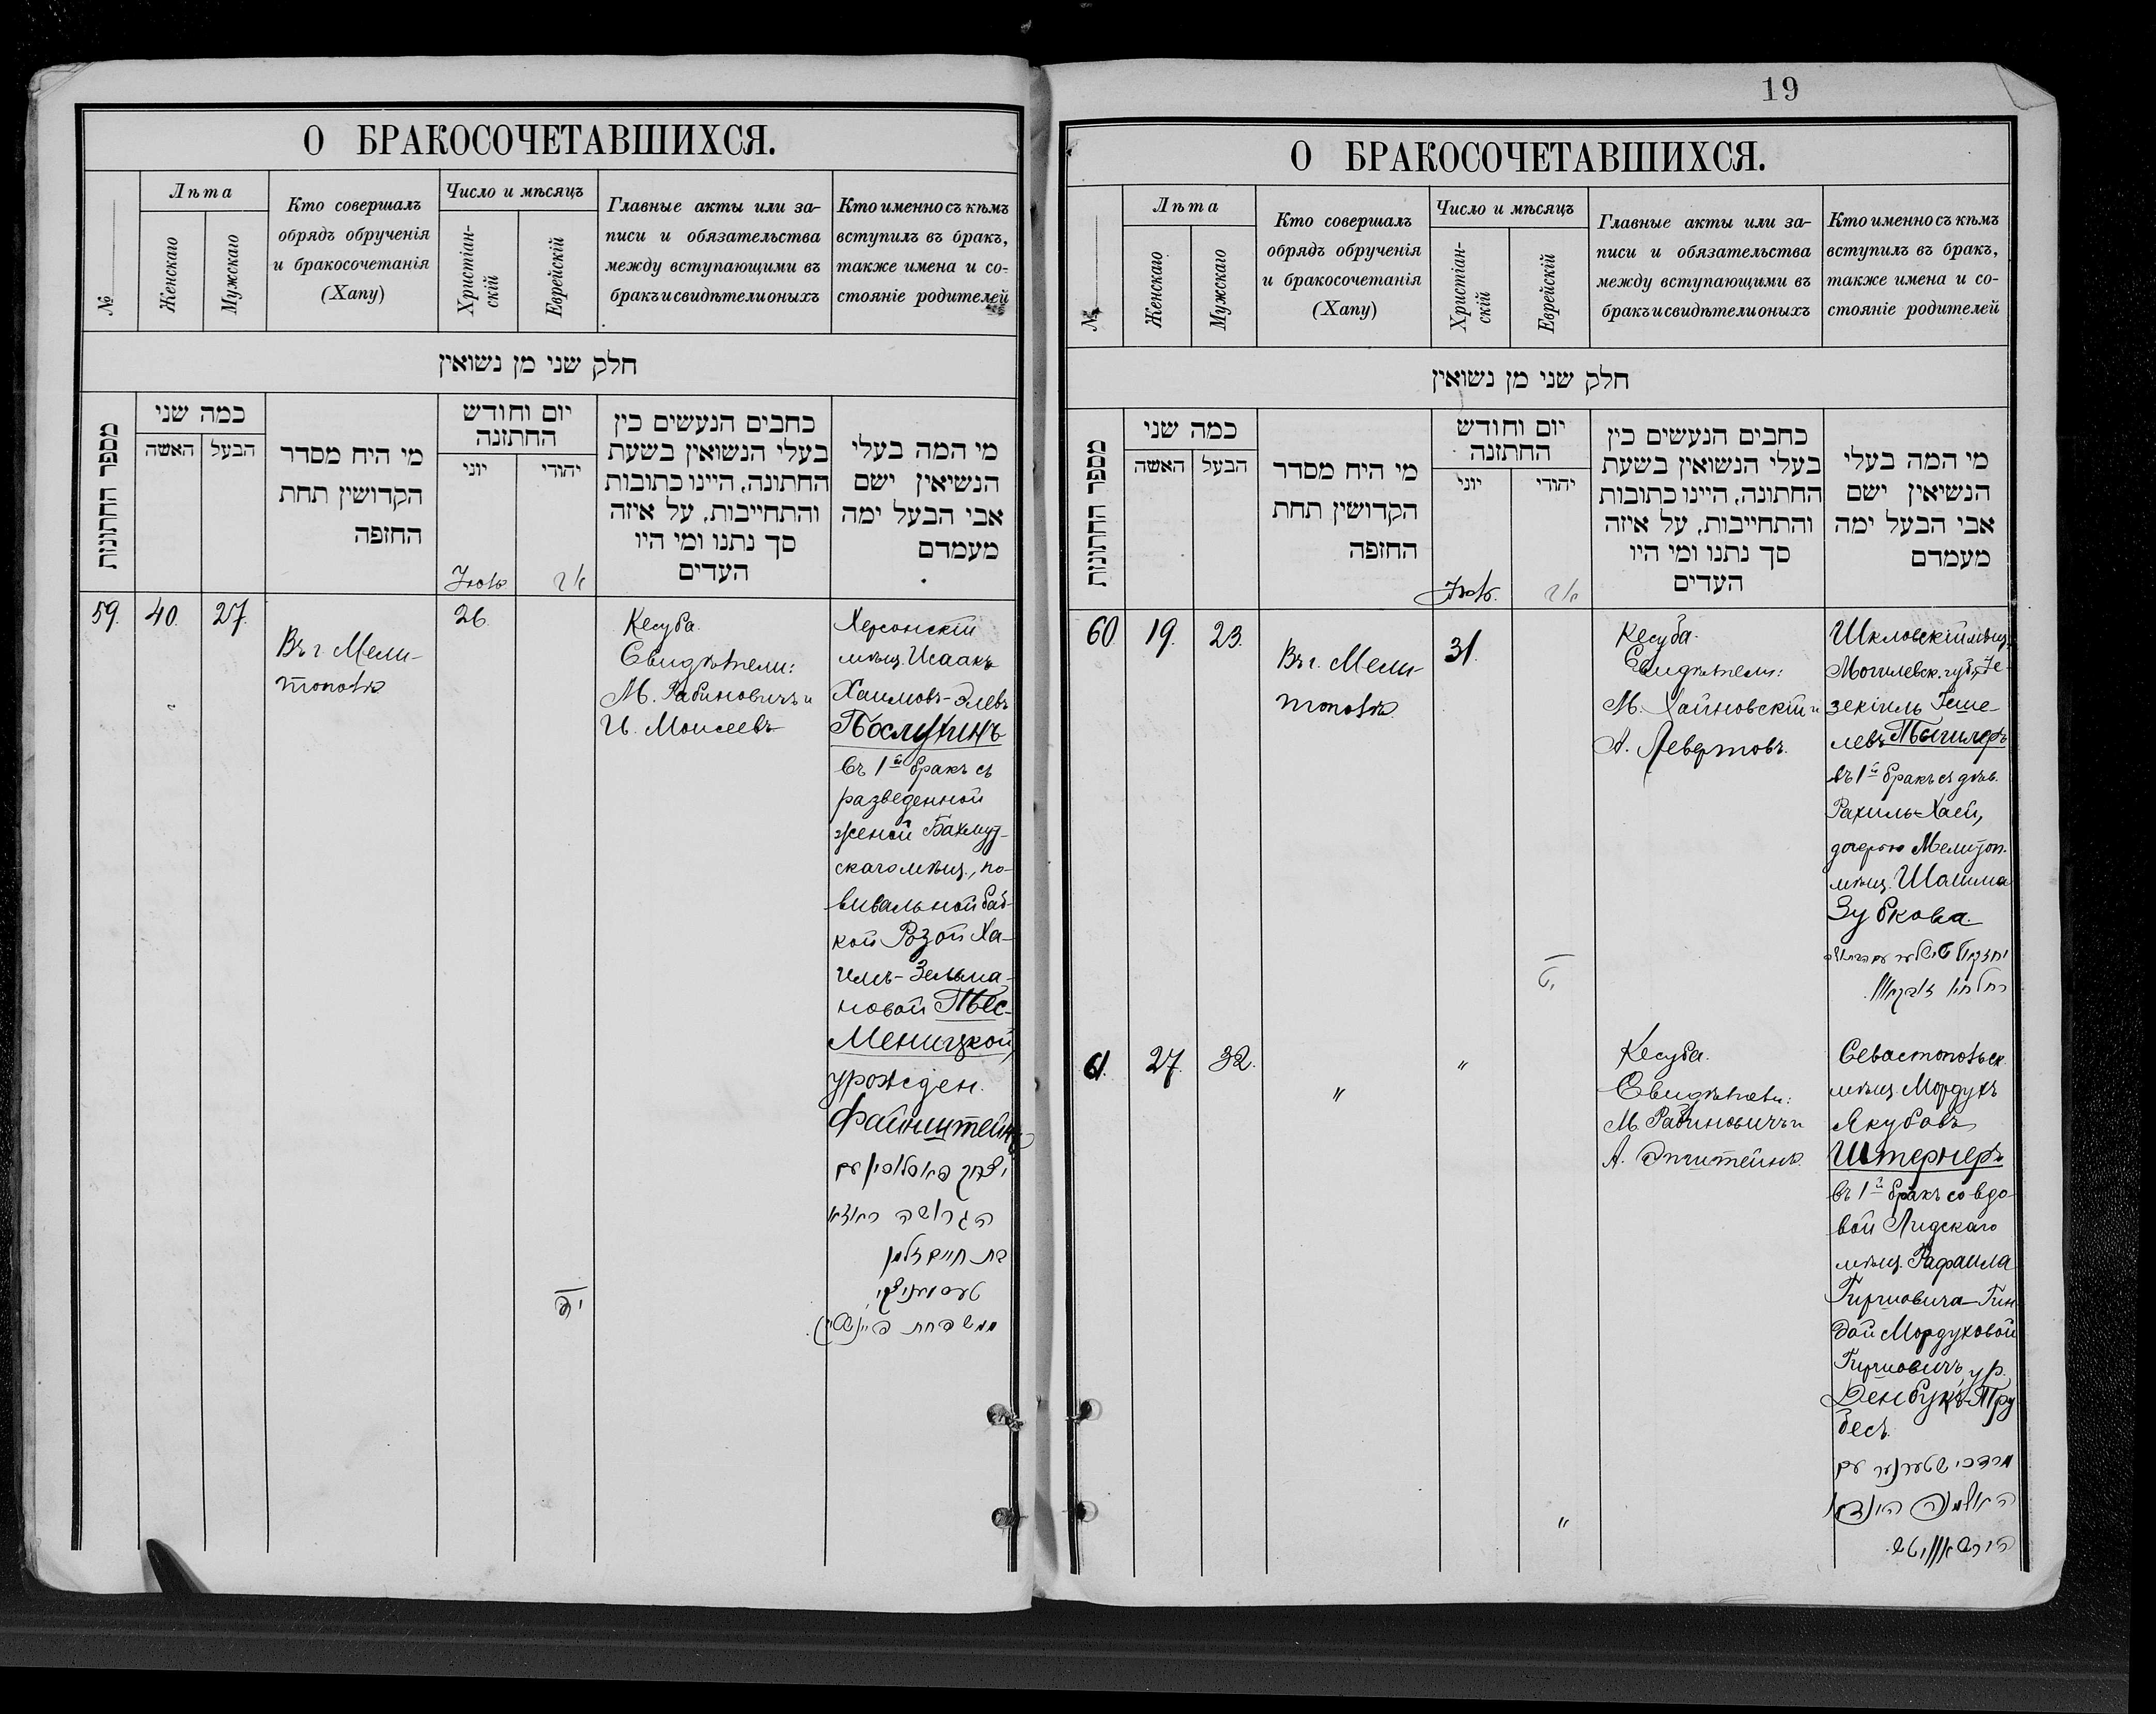 О БРАКОСОЧЕТАВШИХСЯ.
№
Лѣта
Женскаго
Мужскаго
Кто совершалъ
обрядъ обрученія
и бракосочетанія
(Хапу)
Число и мѣсяцъ
Христіан-
скій
Еврейскій
Главные акты или за-
писи и обязательства
между вступающими въ
бракъ и свидѣтели оныхъ
Кто именно съ кѣмъ
вступилъ въ бракъ,
также имена и со-
стояніе родителей
חלק שני מן נשואין
מספר החתונות
כמה שני
האשה
הבעל
מי היח מסדר
הקדושין תחת
החזפה
יום וחודש
החתזנה
יוני
יהודי
כחבים הנעשים כין
בעלי הנשואין בשעת
החתונה, היינו כתובות
והתחייבות, על איזה
סך נתנו ומי היו
העדים
מי המה בעלי
הנשיאין ישם
אבי הבעל ימה
מעמדם
59.
40.
27.
Въ г. Мели-
тополѣ
26.
Кесуба.
Свидѣтели:
М. Рабиновичъ и
И. Моисеевъ
Херсонскій
мѣщ. Исаакъ
Хаимовъ-Элевъ
въ 1й бракъ съ
разведенной
женой Бахмут-
скаго мѣщ., по-
вивальной баб-
кой Розой Ха-
имъ-Зельма-
новой Тес-
меницкой,
урожден.
Файнштейнъ
יצחק עם
הגרושה ראזא
בת חיים זלמן
טעסמניצקי
ממשפחת
19
О БРАКОСОЧЕТАВШИХСЯ.
№
Лѣта
Женскаго
Мужскаго
Кто совершалъ
обрядъ обрученія
и бракосочетанія
(Хапу)
Число и мѣсяцъ
Христіан-
скій
Еврейскій
Главные акты или за-
писи и обязательства
между вступающими въ
бракъ и свидѣтели оныхъ
Кто именно съ кѣмъ
вступилъ въ бракъ,
также имена и со-
стояніе родителей
חלק שני מן נשואין
מספר החתונות
כמה שני
האשה
הבעל
מי היח מסדר
הקדושין תחת
החזפה
יום וחודש
החתזנה
יוני
יהודי
כחבים הנעשים כין
בעלי הנשואין בשעת
החתונה, היינו כתובות
והתחייבות, על איזה
סך נתנו ומי היו
העדים
מי המה בעלי
הנשיאין ישם
אבי הבעל ימה
מעמדם
60
19.
23.
Въ г. Мели-
тополѣ.
31.
Кесуба.
Свидѣтели:
М. Хайновскій и
А. Левертовъ.
Шкловскій мѣщ.,
Могилевск. губ., Іе-
зекіиль Геше-
левъ
въ 1й бракъ съ дѣв.
Рахиль-Хаей,
дочерью Мелитоп.
мѣщ. Шлиома
Зубкова.
יחזקאל עם הבתולה
רחל חיי
61.
27.
32.
"
"
Кесуба.
Свидѣтели:
М. Рабиновичъ и
А. Эпштейнъ.
Севастопольск.
мѣщ. Мордухъ
Якубовъ
Штернеръ
въ 1й бракъ со вдо-
вой Лидскаго
мѣщ. Рафаила
Гиршовича Гин-
дой Мордуховой
Гиршовичъ, ур.
Денбукъ-Тру
бесъ.
"
מרדכי שטערנער עם
האלמנה הינדא
הירשאוויטש.